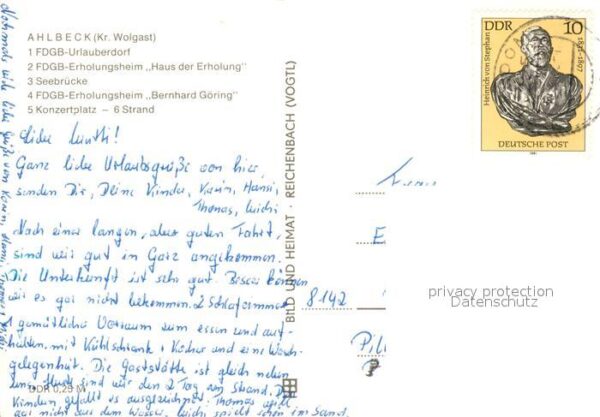 AHLBECK (Kr. Wolgast)
1 FDGB-Urlauberdorf
2 FDGB-Erholungsheim „Haus der Erholung"
3 Seebrücke
4 FDGB-Erholungsheim „Bernhard Göring"
5 Konzertplatz – 6 Strand
Liebe Mutti!
Ganz liebe Urlaubsgrüße von hier,
senden Dir, Deine Kinder, Karin, Hansi,
Thomas,
Nach einer langen, aber guten Fahrt,
sind wir gut in Garz angekommen.
Die Unterkunft ist sehr gut. Besser können
wir es gar nicht bekommen. 2 Schlafzimmer
1 gemütlicher Vorraum zum essen und auf-
halten, mit Kühlschrank + Kocher und eine Wasch-
gelegenheit. Die Gaststätte ist gleich neben
sind wir den 2 Tag am Strand. D.
Kindern gefällt es ausgezeichnet. Thomas will
gar nicht aus dem Wasser. spielt schön im Sand.
DDR 0,25 M
Nochmals viele liebe Grüße von Karin, Hansi, Thomas +
BILD UND HEIMAT · REICHENBACH (VOGTL)
DDR 10
Heinrich von Stephan
1831-1897
DEUTSCHE POST
E
8142
Pil
privacy protection
Datenschutz